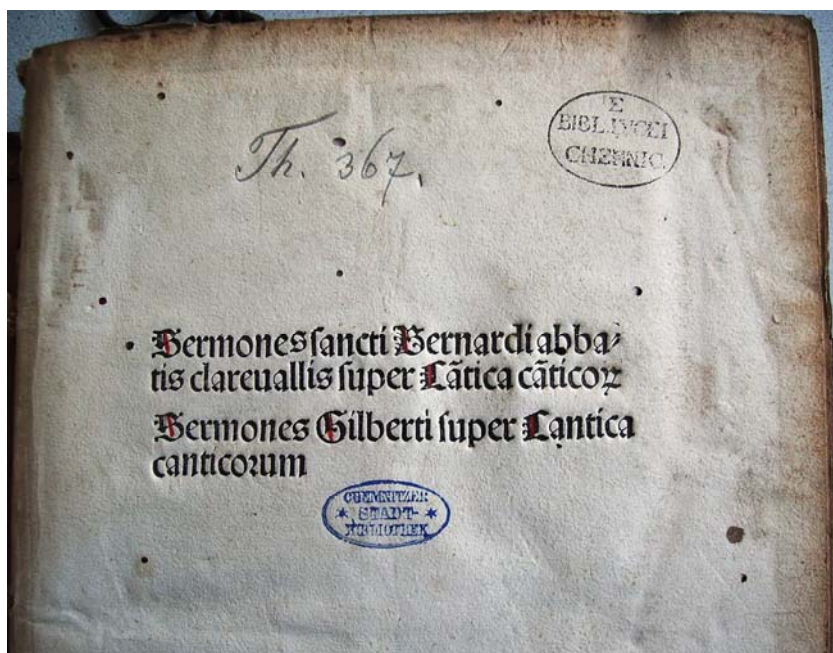 E
BIBL. LYCEI
CHEMNIC.
Th. 367.
Sermones sancti Bernardi abba⸗
tis clareuallis super Cãtica cãticoꝝ
Sermones Gilberti super Cantica
canticorum
CHEMNITZER
* STADT- *
BIBLIOTHEK